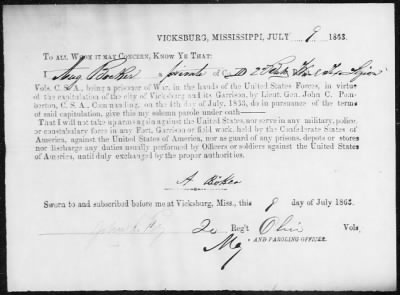 VICKSBURG, MISSISSIPPI, JULY 9 1863.
TO ALL WHOM IT MAY CONCERN, KNOW YE THAT:
I Aug Booker a private of Co D 2 Regt Texas Legion
Vols. C. S. A., being a prisoner of War, in the hands of the United States Forces, in virtue
of the capitulation of the city of Vicksburg and its Garrison, by Lieut. Gen. John C. Pem-
berton, C. S. A., Commanding, on the 4th day of July, 1863, do in pursuance of the terms
of said capitulation, give this my solemn parole under oath—
That I will not take up arms again against the United States, nor serve in any military, police,
or constabulary force in any Fort, Garrison or field work, held by the Confederate States of
America, against the United States of America, nor as guard of any prisons, depots or stores
nor discharge any duties usually performed by Officers or soldiers against the United States
of America, until duly exchanged by the proper authorities.
A Böker
Sworn to and subscribed before me at Vicksburg, Miss., this 9 day of July 1863.
20 Reg't Ohio Vols
Maj AND PAROLING OFFICER.